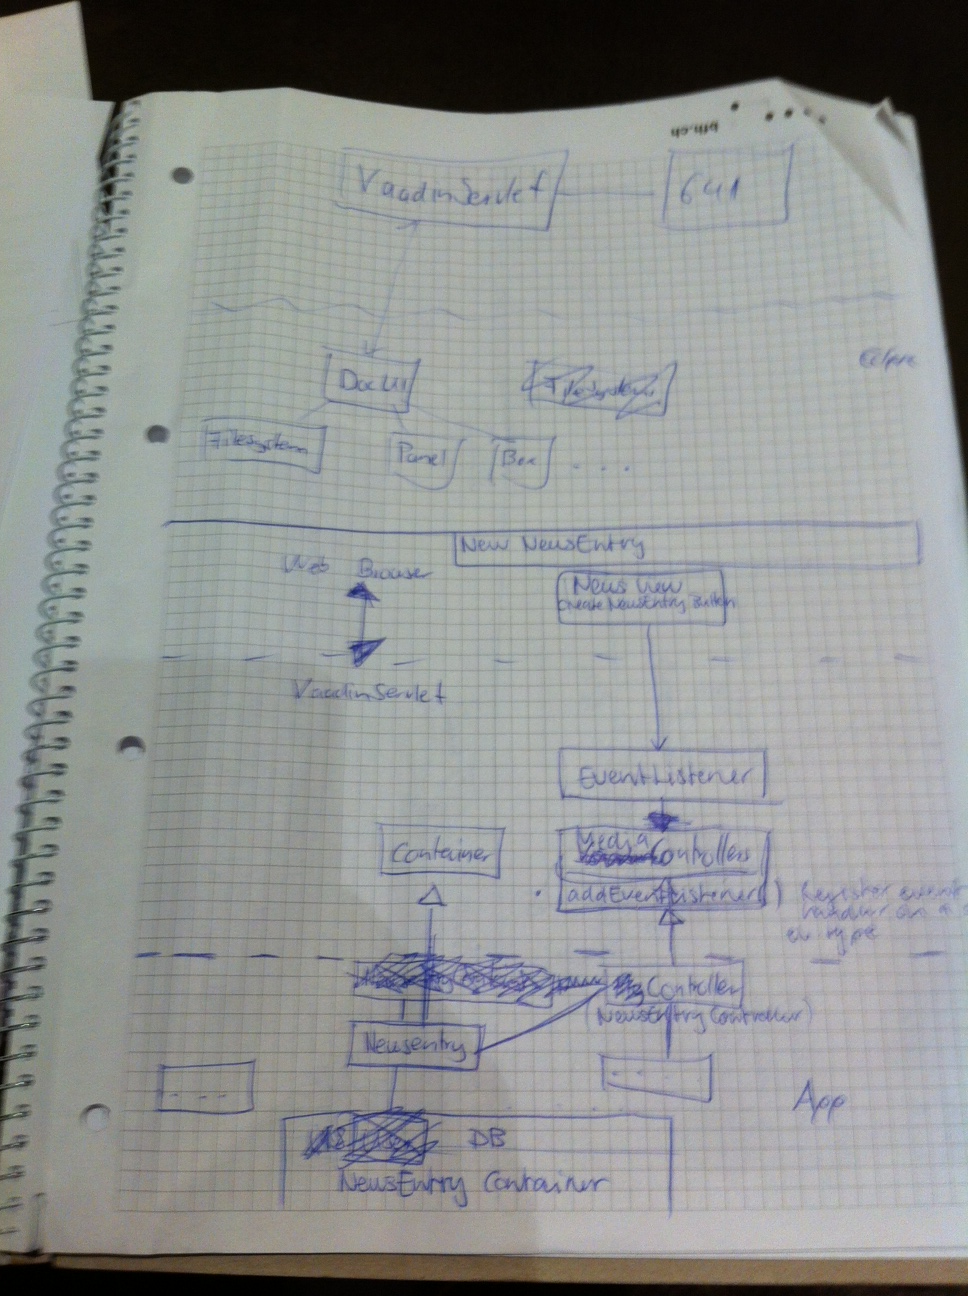 bfh.ch
VaadinServlet
Doc UI
Filesystem
Panel
Box
. . .
New NewsEntry
Web Browser
News View
CreateNewsEntry Button
VaadinServlet
EventListener
Container
Media
Controllers
addEventListener( ) Register event
handler on a
type
Controller
(NewsEntryController)
Newsentry
App
DB
NewsEntry Container